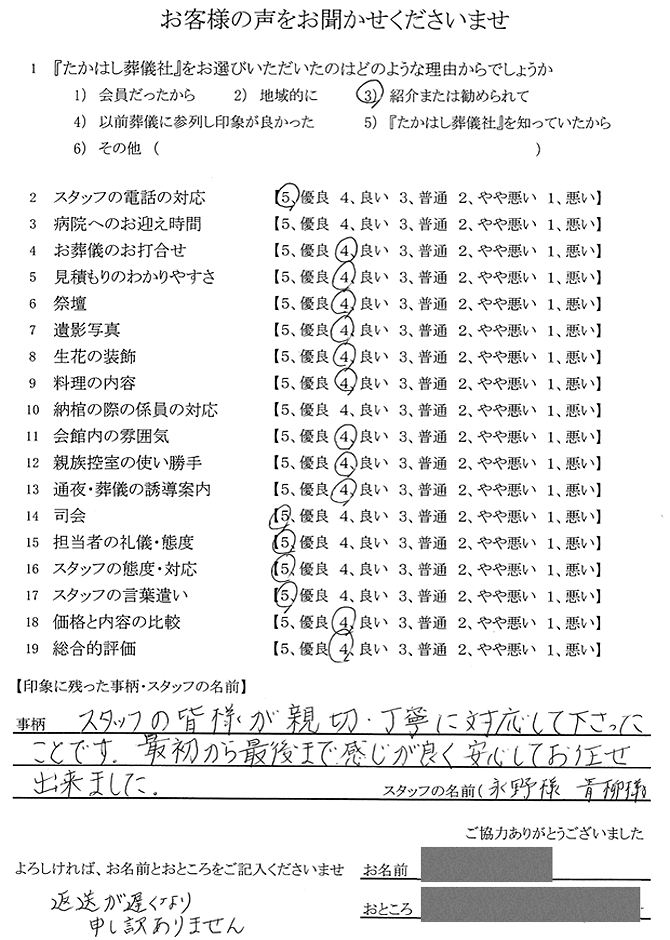 お客様の声をお聞かせくださいませ
1 『たかはし葬儀社』をお選びいただいたのはどのような理由からでしょうか
1) 会員だったから 2) 地域的に 3) 紹介または勧められて
4) 以前葬儀に参列し印象が良かった 5) 『たかはし葬儀社』を知っていたから
6) その他 ( )
2 スタッフの電話の対応 【5、優良 4、良い 3、普通 2、やや悪い 1、悪い】
3 病院へのお迎え時間 【5、優良 4、良い 3、普通 2、やや悪い 1、悪い】
4 お葬儀のお打合せ 【5、優良 4、良い 3、普通 2、やや悪い 1、悪い】
5 見積もりのわかりやすさ 【5、優良 4、良い 3、普通 2、やや悪い 1、悪い】
6 祭壇 【5、優良 4、良い 3、普通 2、やや悪い 1、悪い】
7 遺影写真 【5、優良 4、良い 3、普通 2、やや悪い 1、悪い】
8 生花の装飾 【5、優良 4、良い 3、普通 2、やや悪い 1、悪い】
9 料理の内容 【5、優良 4、良い 3、普通 2、やや悪い 1、悪い】
10 納棺の際の係員の対応 【5、優良 4、良い 3、普通 2、やや悪い 1、悪い】
11 会館内の雰囲気 【5、優良 4、良い 3、普通 2、やや悪い 1、悪い】
12 親族控室の使い勝手 【5、優良 4、良い 3、普通 2、やや悪い 1、悪い】
13 通夜・葬儀の誘導案内 【5、優良 4、良い 3、普通 2、やや悪い 1、悪い】
14 司会 【5、優良 4、良い 3、普通 2、やや悪い 1、悪い】
15 担当者の礼儀・態度 【5、優良 4、良い 3、普通 2、やや悪い 1、悪い】
16 スタッフの態度・対応 【5、優良 4、良い 3、普通 2、やや悪い 1、悪い】
17 スタッフの言葉遣い 【5、優良 4、良い 3、普通 2、やや悪い 1、悪い】
18 価格と内容の比較 【5、優良 4、良い 3、普通 2、やや悪い 1、悪い】
19 総合的評価 【5、優良 4、良い 3、普通 2、やや悪い 1、悪い】
【印象に残った事柄・スタッフの名前】
事柄 スタッフの皆様が親切・丁寧に対応して下さった
ことです。最初から最後まで感じが良く安心してお任せ
出来ました。 スタッフの名前(永野様 青柳様)
ご協力ありがとうございました
よろしければ、お名前とおところをご記入くださいませ お名前
返送が遅くなり
申し訳ありません
おところ